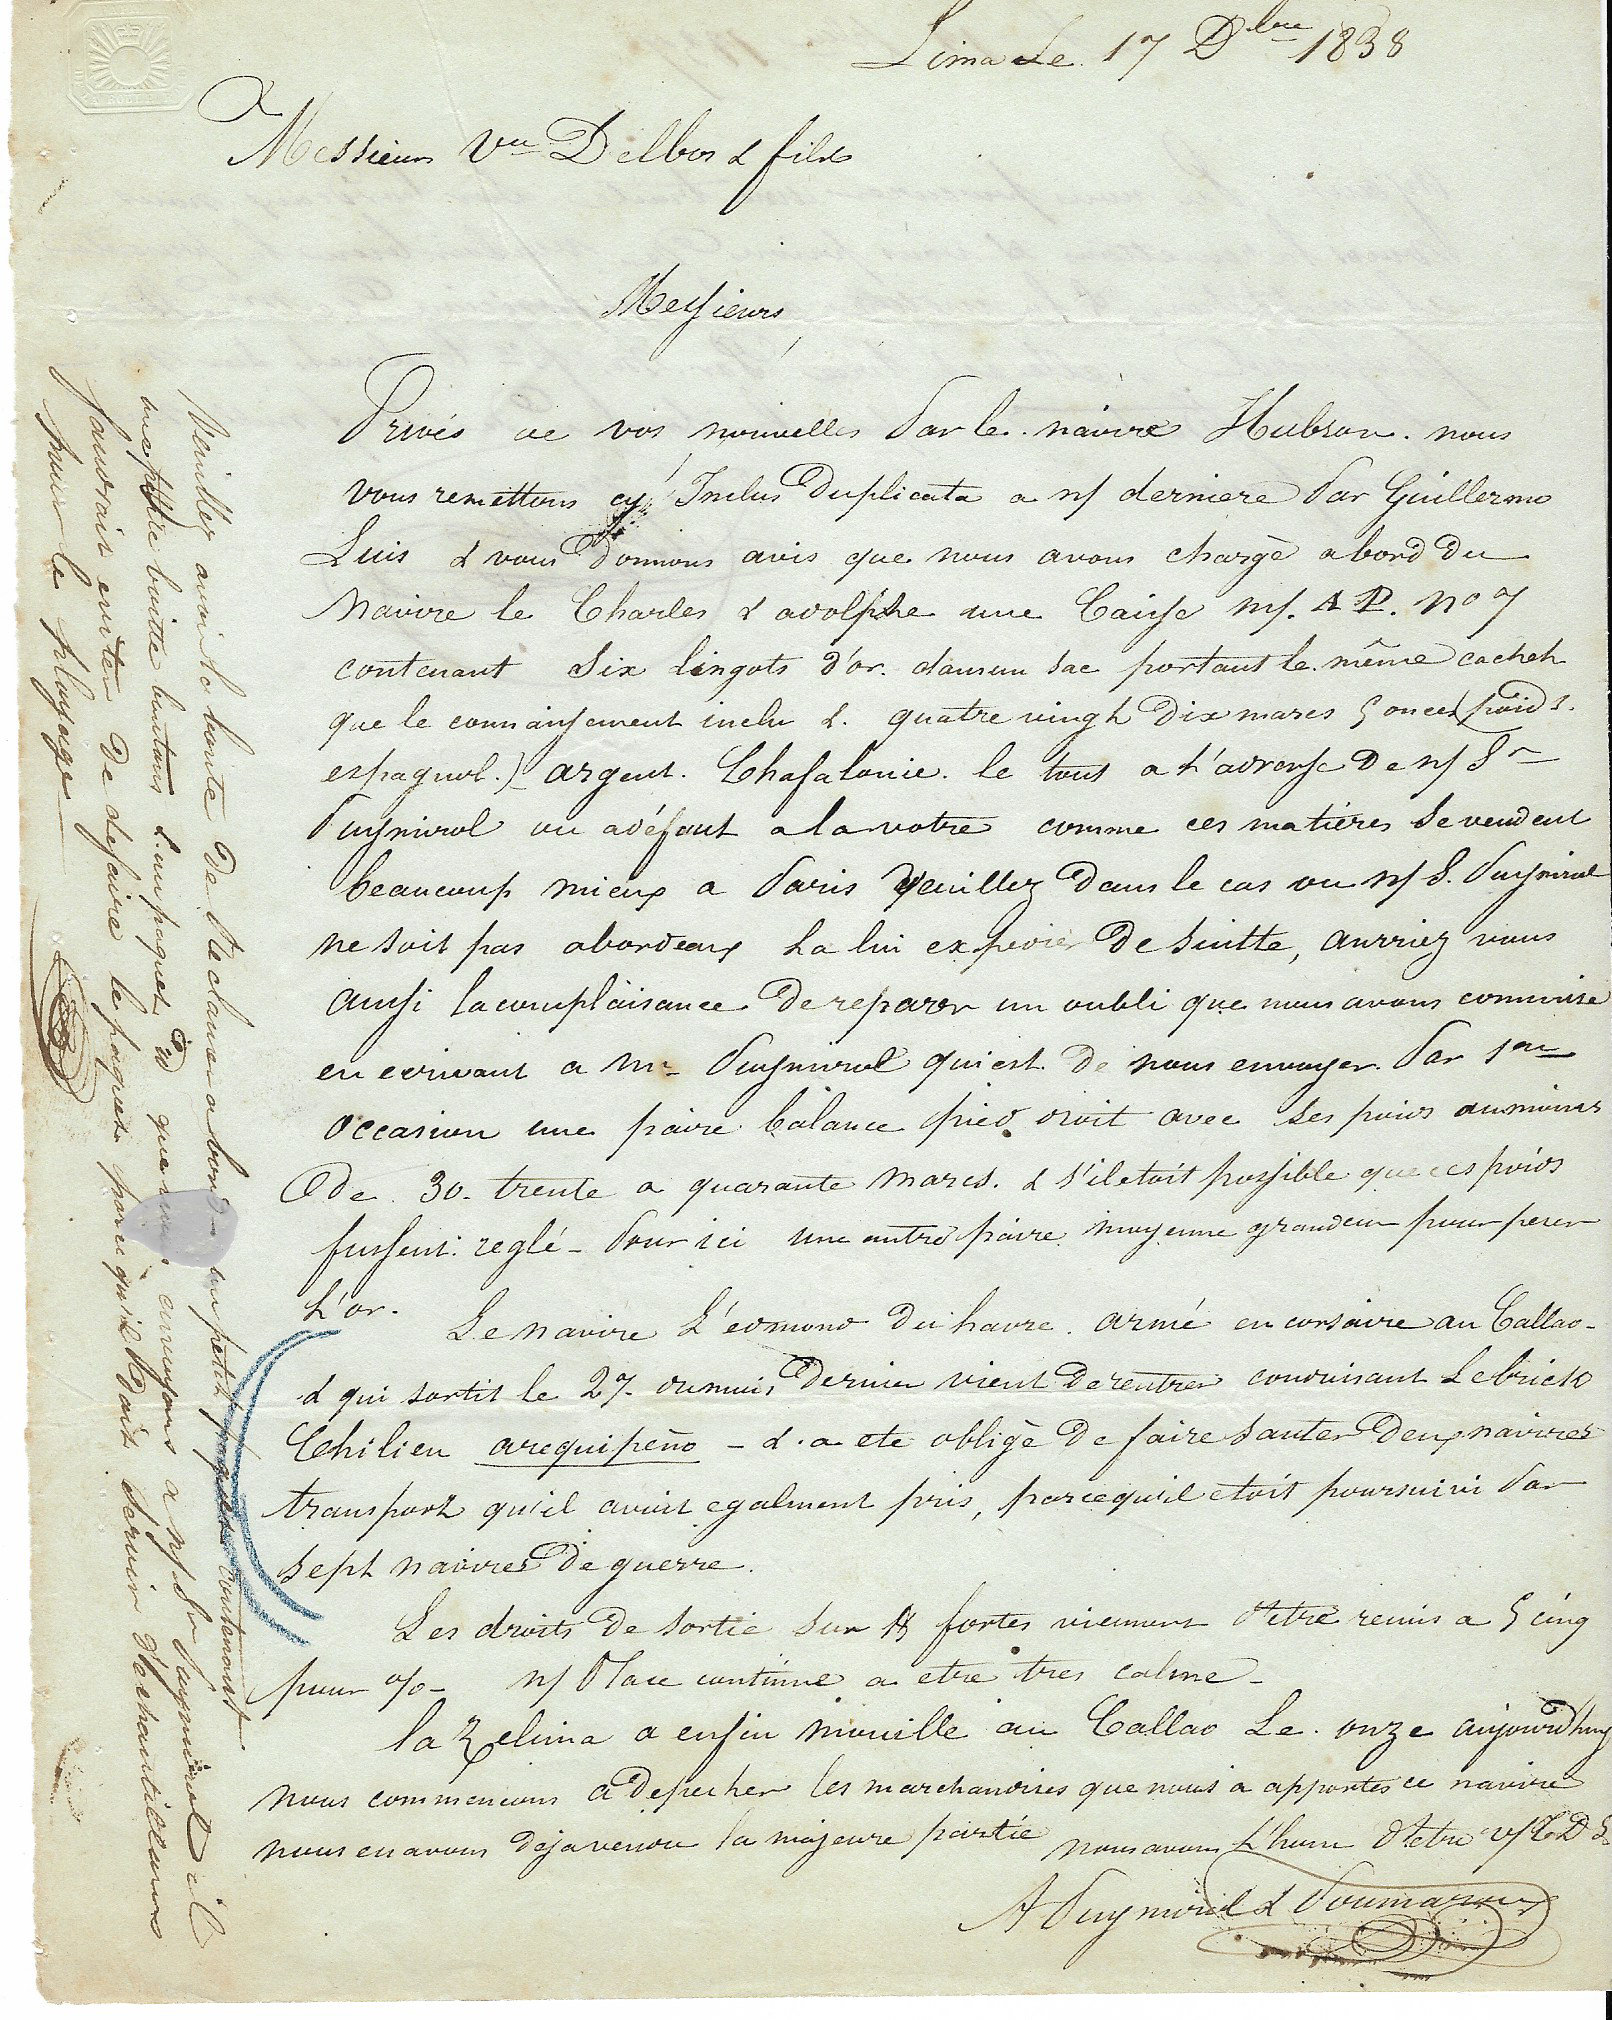 Lima Le 17 Dbre 1838
Messieurs Vve Delbos & fils
Messieurs
Privés de vos nouvelles Par le navire Hubson. nous
vous remettons cy Inclus Duplicata a n/ derniere Par Guillermo
Luis & vous Donnons avis que nous avons chargé abord Du
Navire le Charles & adolphe une Caisse m/. AP. No 7
contenant Six lingots d'or. dans un sac portant le même cachet
que le connaissement inclu &. quatre vingt Dix marcs 5 onces (poids
espagnol.) argent. Chafalonie. le tout a L'adresse De n/ Sr
Puymirol ou adéfaut a la votre comme ces matières Se vendent
beaucoup mieux a Paris Veuillez Dans le cas ou n/ S. Puymirol
ne soit pas abordeaux La lui expedier De suitte, aurriez vous
aussi la complaisance De reparer un oubli que nous avons commise
en ecrivant a Mr Puymirol qui est De nous envoyer. Par 1ere
occasion une paire balance pied droit avec Ses poids aumoins
De 30. trente a quarante Marcs. & s'il etoit possible que ces poids
fussent reglé - Pour ici une autre paire moyenne grandeur pour peser
L'or.
Le Navire L'edmond Du havre. armé en corsaire au Callao
& qui sortit le 27. dumois Dernier vient De rentrer conduisant Le brick
Chilien arequipeño - & a ete obligé De faire Sauter Deux navires
transport qu'il avoit egalment pris, parcequ'il etoit poursuivi Par
Sept navires De guerre.
Les droits De Sortie Sur fortes viennent D'etre remis a 5 cinq
pour %- n/ Place continue a etre tres calme -
la Zelima a enfin mouille au Callao Le. onze aujourd'huy
nous commencons a Depecher les marchandises que nous a apportés ce navire
nous en avons Déja vendu la majeure partie nous avons L'honr D'etre v/ T D S
A Puymirol & Poumaroux
Veuillez avoir la bonté De Reclamer abord un petit paquet contenant
une petitte boitte & un paquet Do que nous envoyons a n/ Sr Puymirol il
faudroit eviter De defaire le paquet parcequ'il Doit Servir D'echantillons
pour le pliage